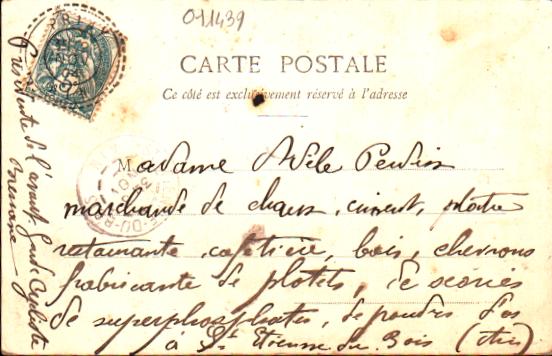 011439
CARTE POSTALE
Ce côté est exclusivement réservé à l'adresse
Madame Adèle Perdrix
marchande de chaux, ciment, plâtre
restaurante, cafetière, bois, chevrons
fabricante de plotets, de scories
de superphosphates, de poudre d'os
à St Etienne du Bois (Ain)
Présidente de l'avant garde cycliste
Bressane